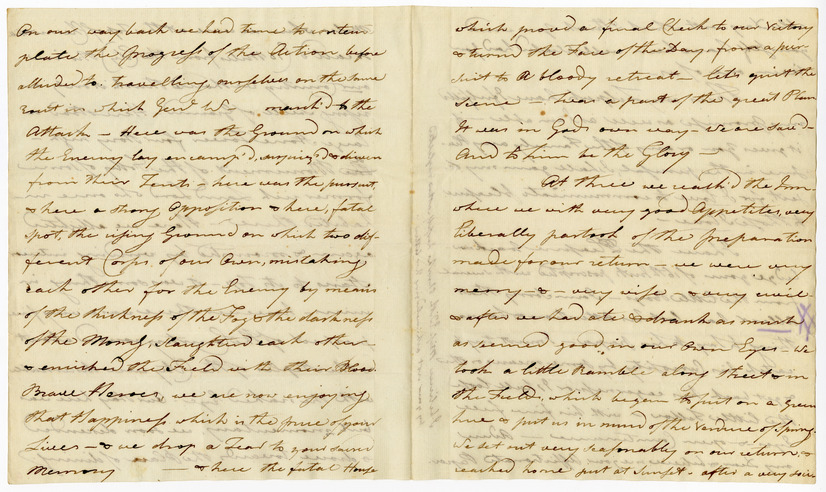 On our way back we had time to contem
plate the Progress of the Action before
alluded to, travelling ourselves on the same
rout in which Genl W march'd to the
Attack — Here was the Ground on which
the Enemy lay encamp'd, surpriz'd & driven
from their Tents — here was the pursuit,
& here a strong Opposition & here, fatal
spot, the rising Ground on which two dif-
ferent Corps of our Own, mistaking
each other for the Enemy by means
of the thickness of the Fog & the darkness
of the Morng, slaughter'd each other —
& enriched the Field with their Blood
Brave Heroes, we are now enjoying
that Happiness which is the price of your
Lives — & we drop a Tear to your dear
Memory — & here the fatal House
which proved a final Check to our Victory
& turned the Face of the Day from a pur
suit to A bloody retreat — lets quit the
Scene — twas a part of the great Plan
It was in Gods own way — We are saved —
And to him be the Glory —
At three we reach'd the Inn
where we with very good Appetites, very
Liberally partook of the preparation
made for our return — we were very
merry — & — very wise & very civil —
& after we had ate & drank as much
as seemed good in our Own Eyes — we
took a little Ramble along street & in
the Fields, which began to put on a green
hue & put us in mind of the Verdure of Spring.
We set out very seasonably on our return, &
reached home just at Sunset — after a very